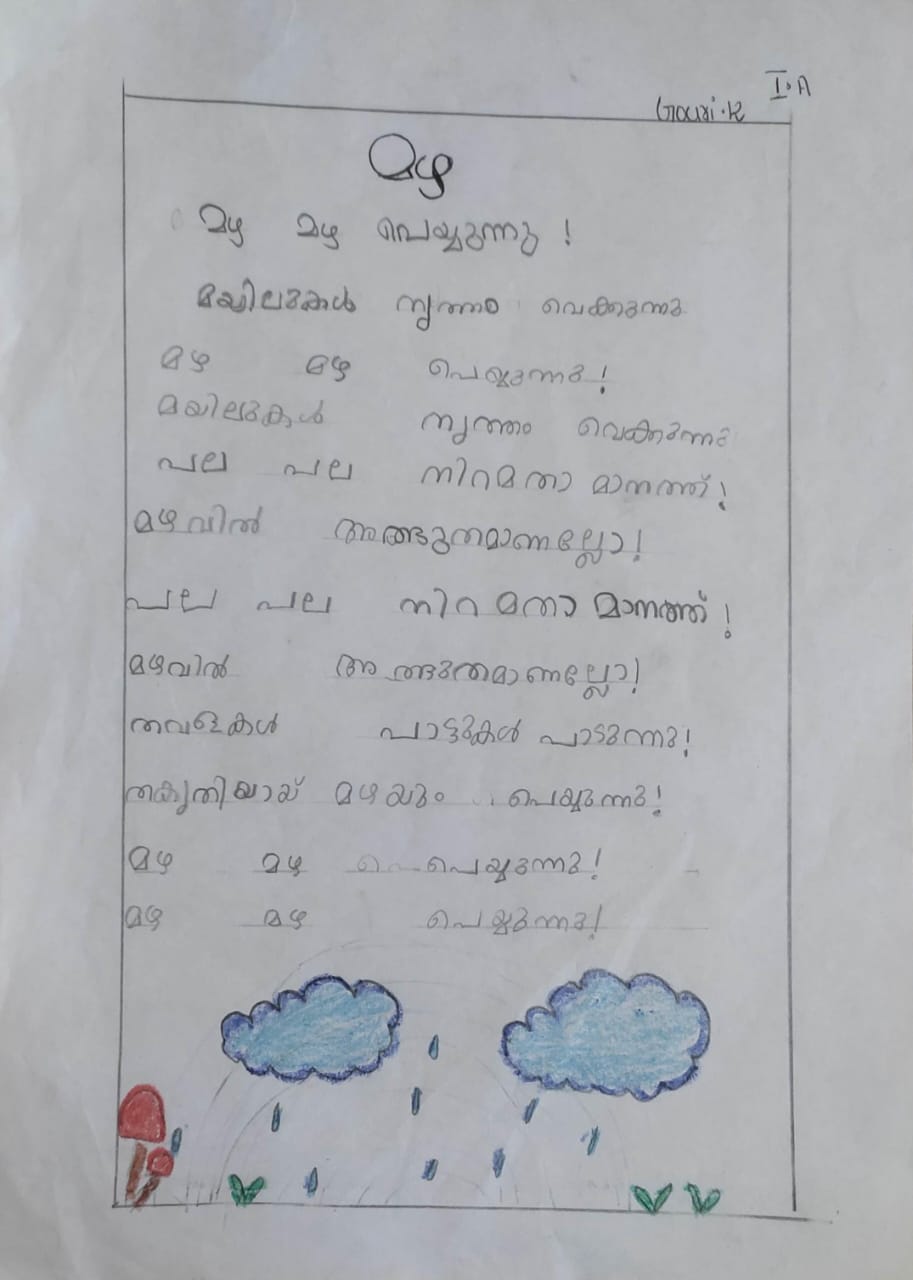 I.A
Gouri.K
മഴ
മഴ മഴ പെയ്യുന്നു !
മയിലുകൾ നൃത്തം വെക്കുന്നു
മഴ മഴ പെയ്യുന്നു !
മയിലുകൾ നൃത്തം വെക്കുന്നു
പല പല നിറമതാ മാനത്ത് !
മഴവിൽ അത്ഭുതമാണല്ലോ !
പല പല നിറമതാ മാനത്ത് !
മഴവിൽ അത്ഭുതമാണല്ലോ !
തവളകൾ പാട്ടുകൾ പാടുന്നു !
തകൃതിയായ് മഴയും പെയ്യുന്നു !
മഴ മഴ പെയ്യുന്നു !
മഴ മഴ പെയ്യുന്നു !